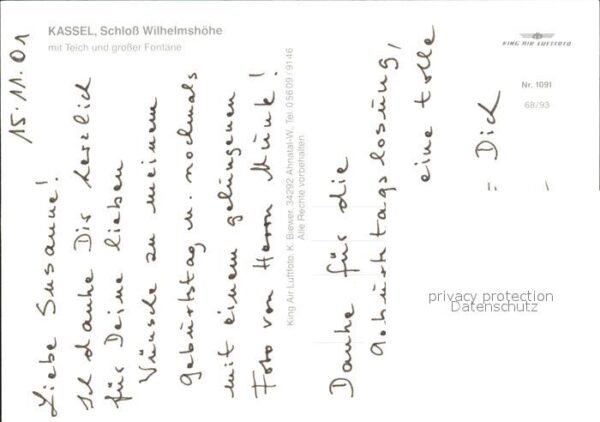 KASSEL, Schloß Wilhelmshöhe
mit Teich und großer Fontäne
KING AIR LUFTFOTO
Nr. 1091
68/93
King Air Luftfoto, K. Biewer, 34292 Ahnatal-W, Tel. 05609/9146
Alle Rechte vorbehalten
15.11.01
Liebe Susanne!
Ich danke Dir herzlich
für Deine lieben
Wünsche zu meinem
Geburtstag u. nochmals
mit einem gelungenen
Foto von Herrn Munk!
Danke für die
Geburtstagslosung,
eine tolle
= Dick
privacy protection
Datenschutz